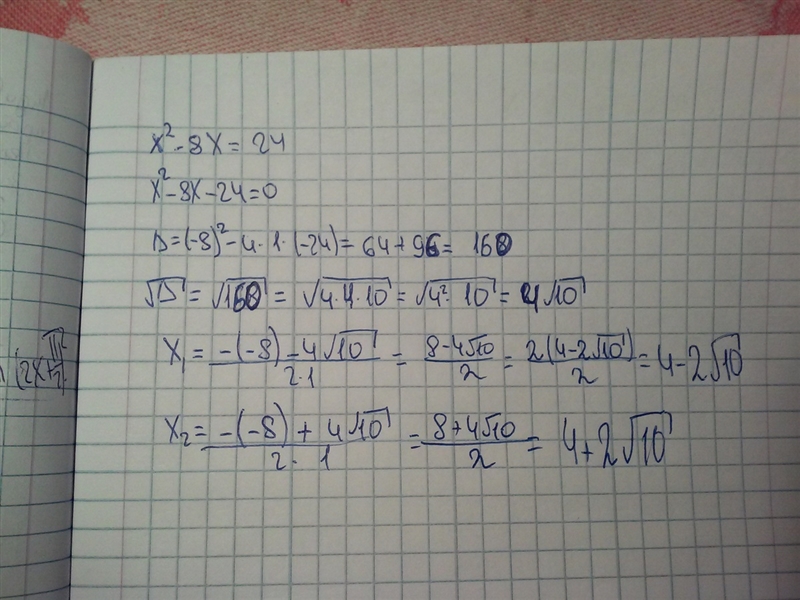 x² - 8x = 24
x² - 8x - 24 = 0
D = (-8)² - 4 · 1 · (-24) = 64 + 96 = 160
√D = √160 = √4·4·10 = √4²·10 = 4√10
x₁ = -(-8) - 4√10 / 2·1 = 8 - 4√10 / 2 = 2(4 - 2√10) / 2 = 4 - 2√10
x₂ = -(-8) + 4√10 / 2·1 = 8 + 4√10 / 2 = 4 + 2√10